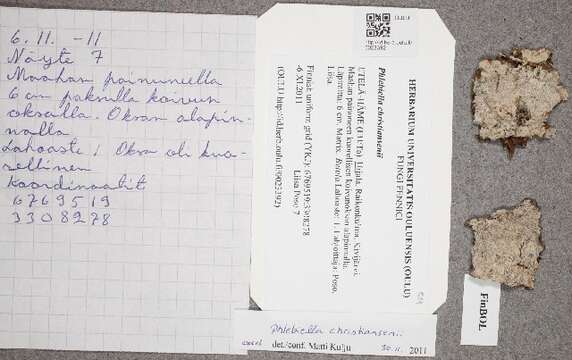 6. 11. -11
Näyte 7
Maahan painuneella
6 cm paksulla koivun
oksalla. Oksan alapin-
nalla
Lahoaste 1 Oksa oli kuo-
rellinen
Koordinaatit
6769519
3308278
HERBARIUM UNIVERSITATIS OULUENSIS (OULU)
FUNGI FENNICI
Phlebiella christiansenii
ETELÄ-HÄME (EH/Ta)
Maahan painuneen kuorellisen koivunoksan alapinnalla.
Läpimitta: 6 cm. Matrix: Betula Lahoaste: 1.
Liisa
Finnish uniform grid (YKJ): 6769519:3308278
-6.XI.2011 Liisa Peso 7
FinBOL
Phlebiella christiansenii
det./conf. Matti Kulju
30.11. 2011